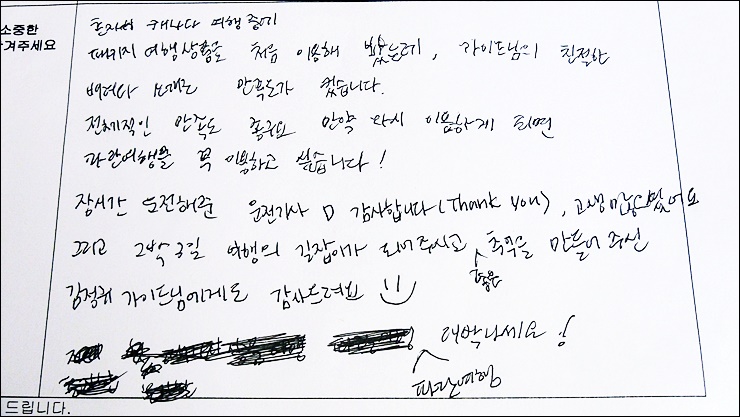 소중한
겨주세요
혼자서 캐나다 여행 중에
패키지 여행상품을 처음 이용해 봤는데, 가이드님의 친절한
배려 만족도가 컸습니다.
전체적인 만족도 좋구요 만약 다시 이용하게 되면
파란여행을 꼭 이용하고 싶습니다!
장시간 운전해준 운전기사 D 감사합니다(Thank You), 고생 많이했어요
그리고 2박3일 여행의 길잡이가 되어주시고 추억을 만들어 주신
좋은
가이드님에게도 감사드려요
대박나세요!
파란여행
드립니다.